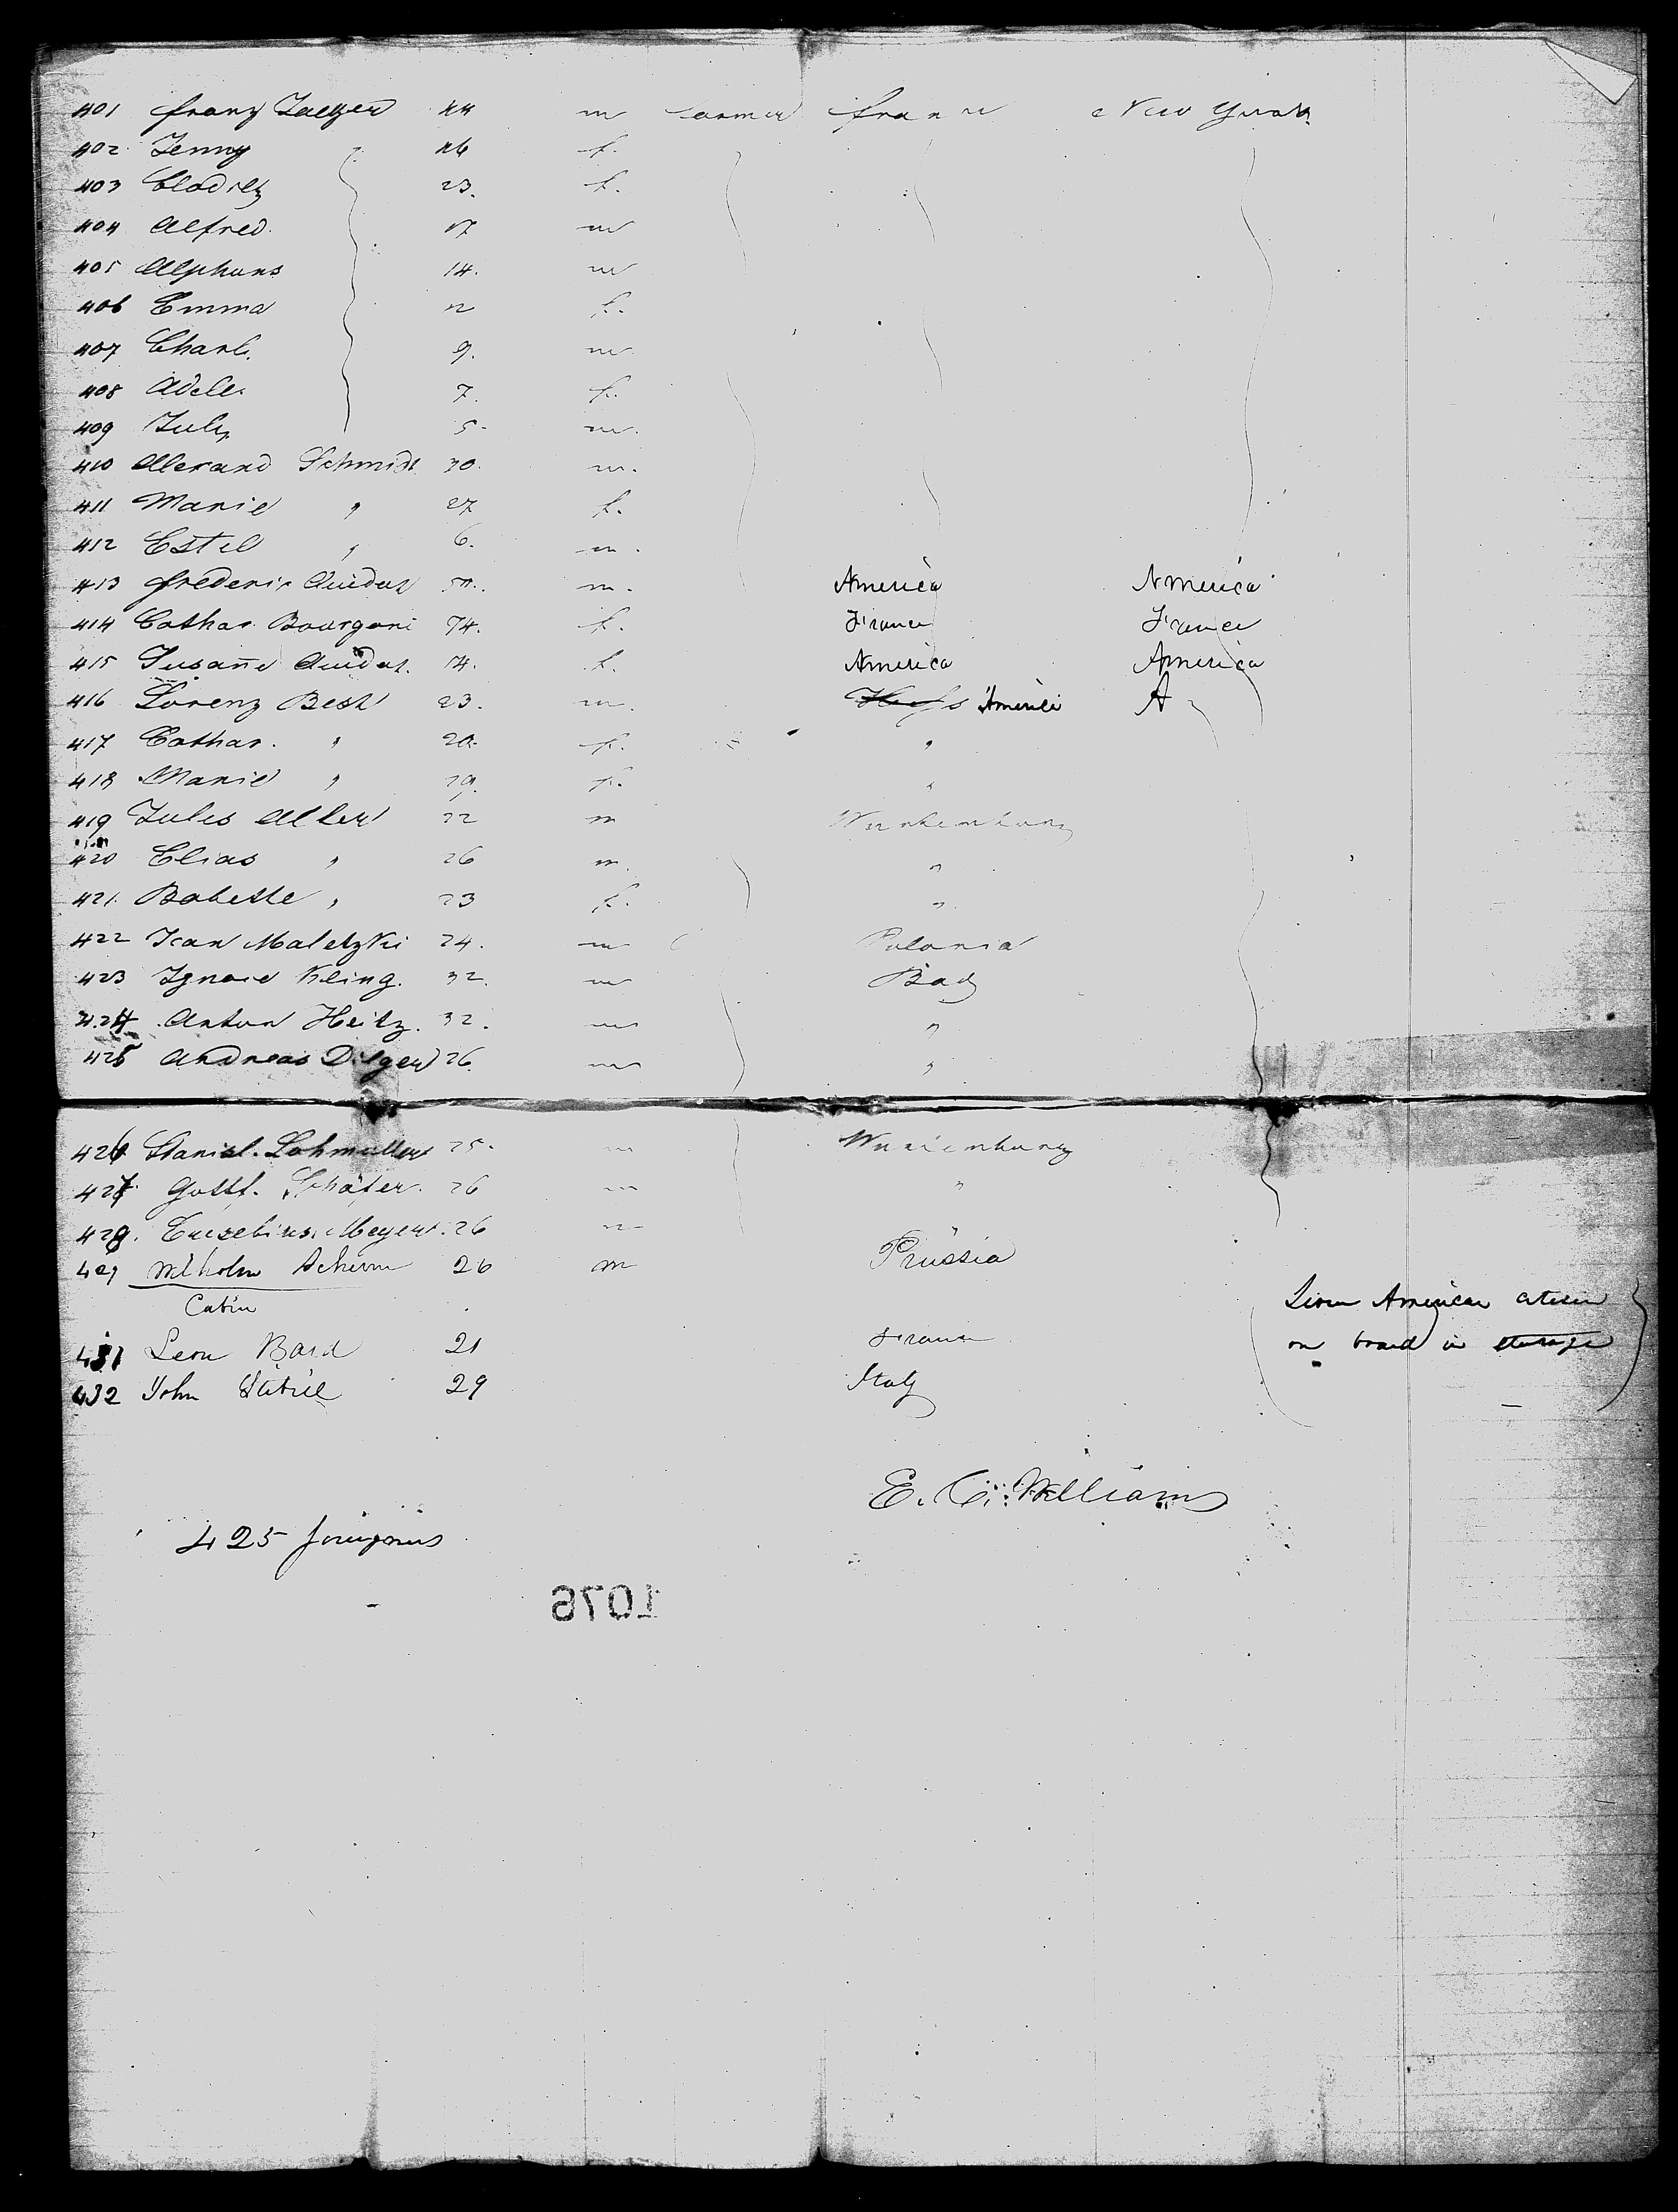 401 Franz Jaeger 44 m Farmer France New York
402 Jenny 46 f.
403 23. f.
404 Alfred. 17 m
405 Alphons 14. m
406 Emma 12 f.
407 Charl. 9. m
408 Adele. 7. f.
409 Jules 5 m.
410 Alexand Schmidt 30. m.
411 Marie " 27 f.
412 Estel " 6. m.
413 Frederic Quidat m. America America
414 Cathar. Bourgoni 74. f. France France
415 Susanne Quidat. 14. f. America America
416 Lorenz Besh 23. m. America A
417 Cathar. " 20. f. "
418 Marie " 19. f. "
419 Jules Aller 22 m Wurtemburg
420 Elias " 26 m. "
421. Babette " 23 f. "
422 Jean Maletzki 24. m Polonia
423 Ignace Kling. 32. m Bad
424 Anton Heitz. 32. m "
425 Andreas Dilger 26 m "
426 Stanisl. Lohmuller 25. m Wurtemburg
427 Gottf. Schäfer. 26 m "
428. Euzebius Meyer. 26 m
429 Wilhelm Schirm 26 m Prussia
Cabin
Seven American citizen
431 Leon Bard 21 France on board in steerage
432 John 29 Italy
E. C. Williams
425 foreigners
1076